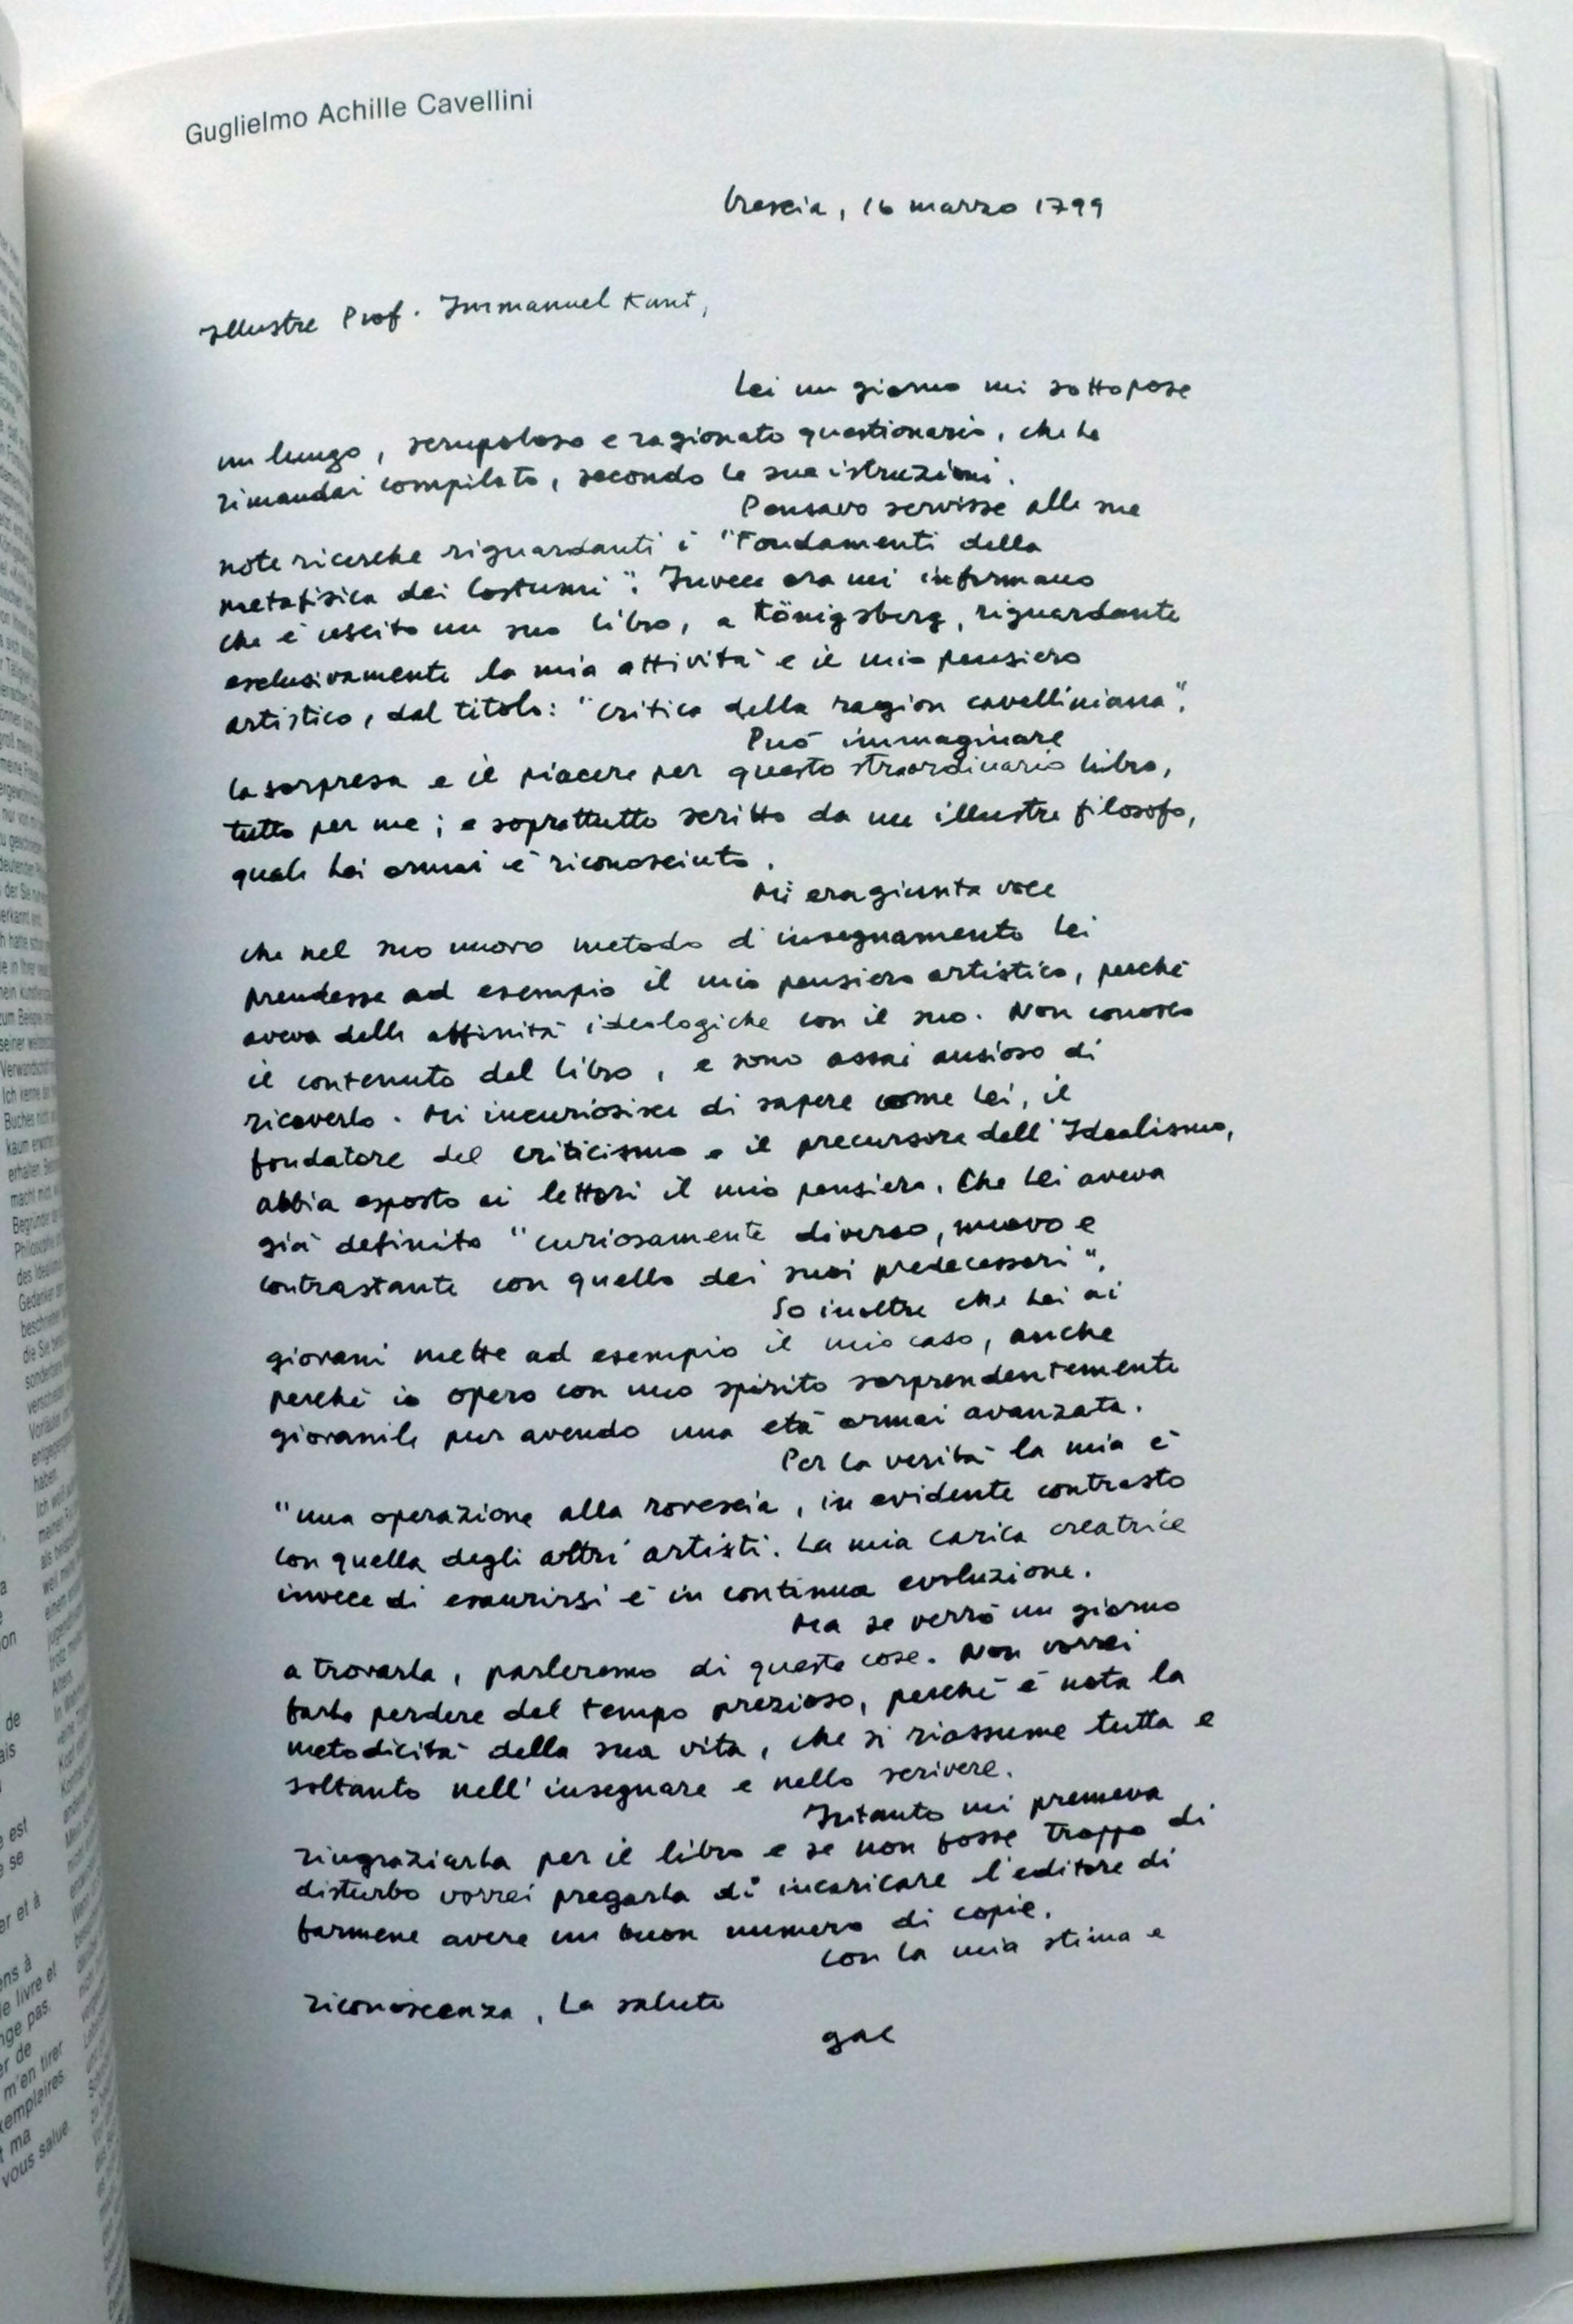 Guglielmo Achille Cavellini
brescia, 16 marzo 1799
Illustre Prof. Immanuel Kant,
Lei un giorno mi sottopose
un lungo, scrupoloso e ragionato questionario, che Le
rimandai compilato, secondo le sue istruzioni.
Pensavo servisse alle sue
note ricerche riguardanti i "Fondamenti della
metafisica dei Costumi". Invece ora mi informano
che è uscito un suo libro, a Königsberg, riguardante
esclusivamente la mia attività e il mio pensiero
artistico, dal titolo: "Critica della ragion cavelliniana".
Può immaginare
la sorpresa e il piacere per questo straordinario libro,
tutto per me; e soprattutto scritto da un illustre filosofo,
quale Lei ormai è riconosciuto.
Mi era giunta voce
che nel suo nuovo metodo d'insegnamento Lei
prendesse ad esempio il mio pensiero artistico, perché
aveva delle affinità ideologiche con il suo. Non conosco
il contenuto del libro, e sono assai ansioso di
riceverlo. Mi incuriosisce di sapere come Lei, il
fondatore del criticismo e il precursore dell'Idealismo,
abbia esposto ai lettori il mio pensiero. Che Lei aveva
già definito "curiosamente diverso, nuovo e
contrastante con quello dei suoi predecessori".
So inoltre che Lei ai
giovani mette ad esempio il mio caso, anche
perché io opero con uno spirito sorprendentemente
giovanile pur avendo una età ormai avanzata.
Per la verità la mia è
"una operazione alla rovescia, in evidente contrasto
con quella degli altri artisti. La mia carica creatrice
invece di esaurirsi è in continua evoluzione.
Ma se verrò un giorno
a trovarla, parleremo di queste cose. Non vorrei
farle perdere del tempo prezioso, perché è nota la
metodicità della sua vita, che si riassume tutta e
soltanto nell'insegnare e nello scrivere.
Intanto mi premeva
ringraziarla per il libro e se non fosse troppo di
disturbo vorrei pregarla di incaricare l'editore di
farmene avere un buon numero di copie.
Con la mia stima e
riconoscenza, La saluto
gac